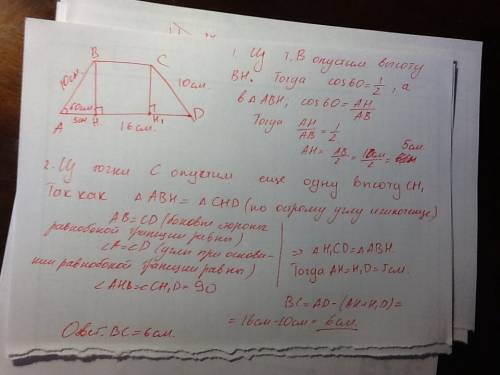 B
C
10см.
10см.
60см
5см
A
H
16см.
H₁
D
1. Из т. B опустим высоту
BH. Тогда cos60 = 1/2, а
в △ABH, cos60 = AH/AB
Тогда AH/AB = 1/2
AH = AB/2 = 10см/2 = 5см.
2. Из точки C опустим еще одну высоту CH₁
Так как △ABH = △CHD (по острому углу и гипотенузе)
AB = CD (боковые стороны
равнобокой трапеции равны)
∠A = ∠D (углы при основа-
нии равнобокой трапеции равны)
∠AHB = ∠CH₁D = 90
⇒ △H₁CD = △ABH.
Тогда AH = H₁D = 5см.
BC = AD - (AH + H₁D) =
= 16см - 10см = 6см.
Ответ: BC = 6см.